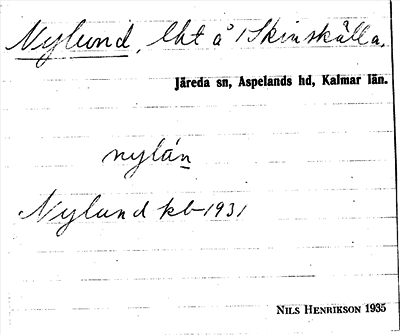 Nylund, lht å 1 Skinskälla.
Järeda sn, Aspelands hd, Kalmar län.
nylán
Nylund kb 1931
NILS HENRIKSON 1935